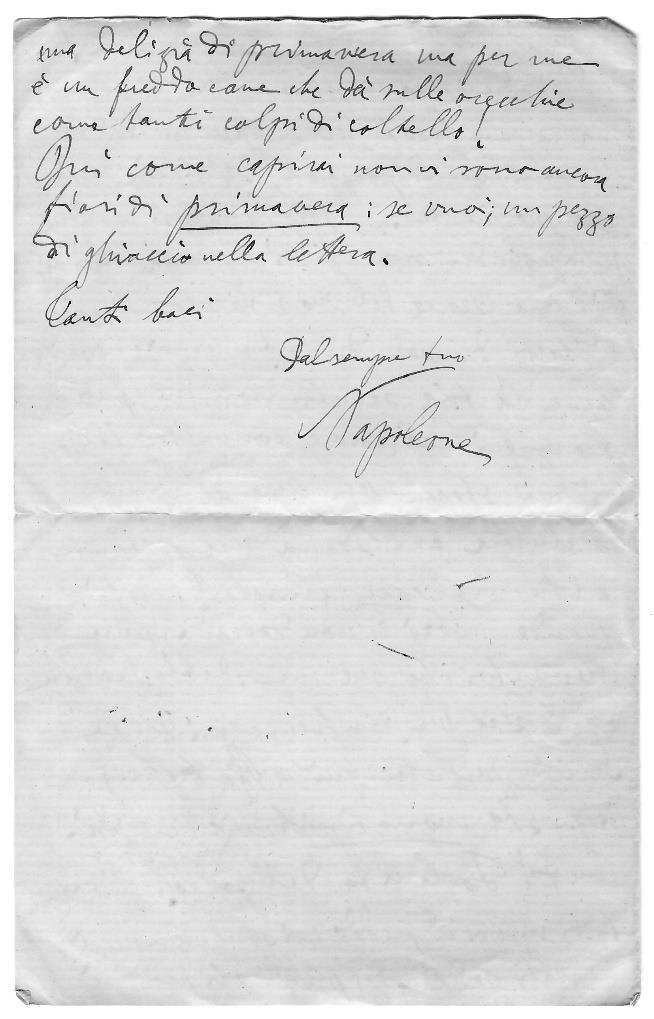 una delizia di primavera ma per me
è un freddo cane che dà sulle orecchie
come tanti colpi di coltello!
Qui come capirai non vi sono ancora
fiori di primavera; se vuoi, un pezzo
di ghiaccio nella lettera.
Tanti baci
Dal sempre tuo
Napoleone